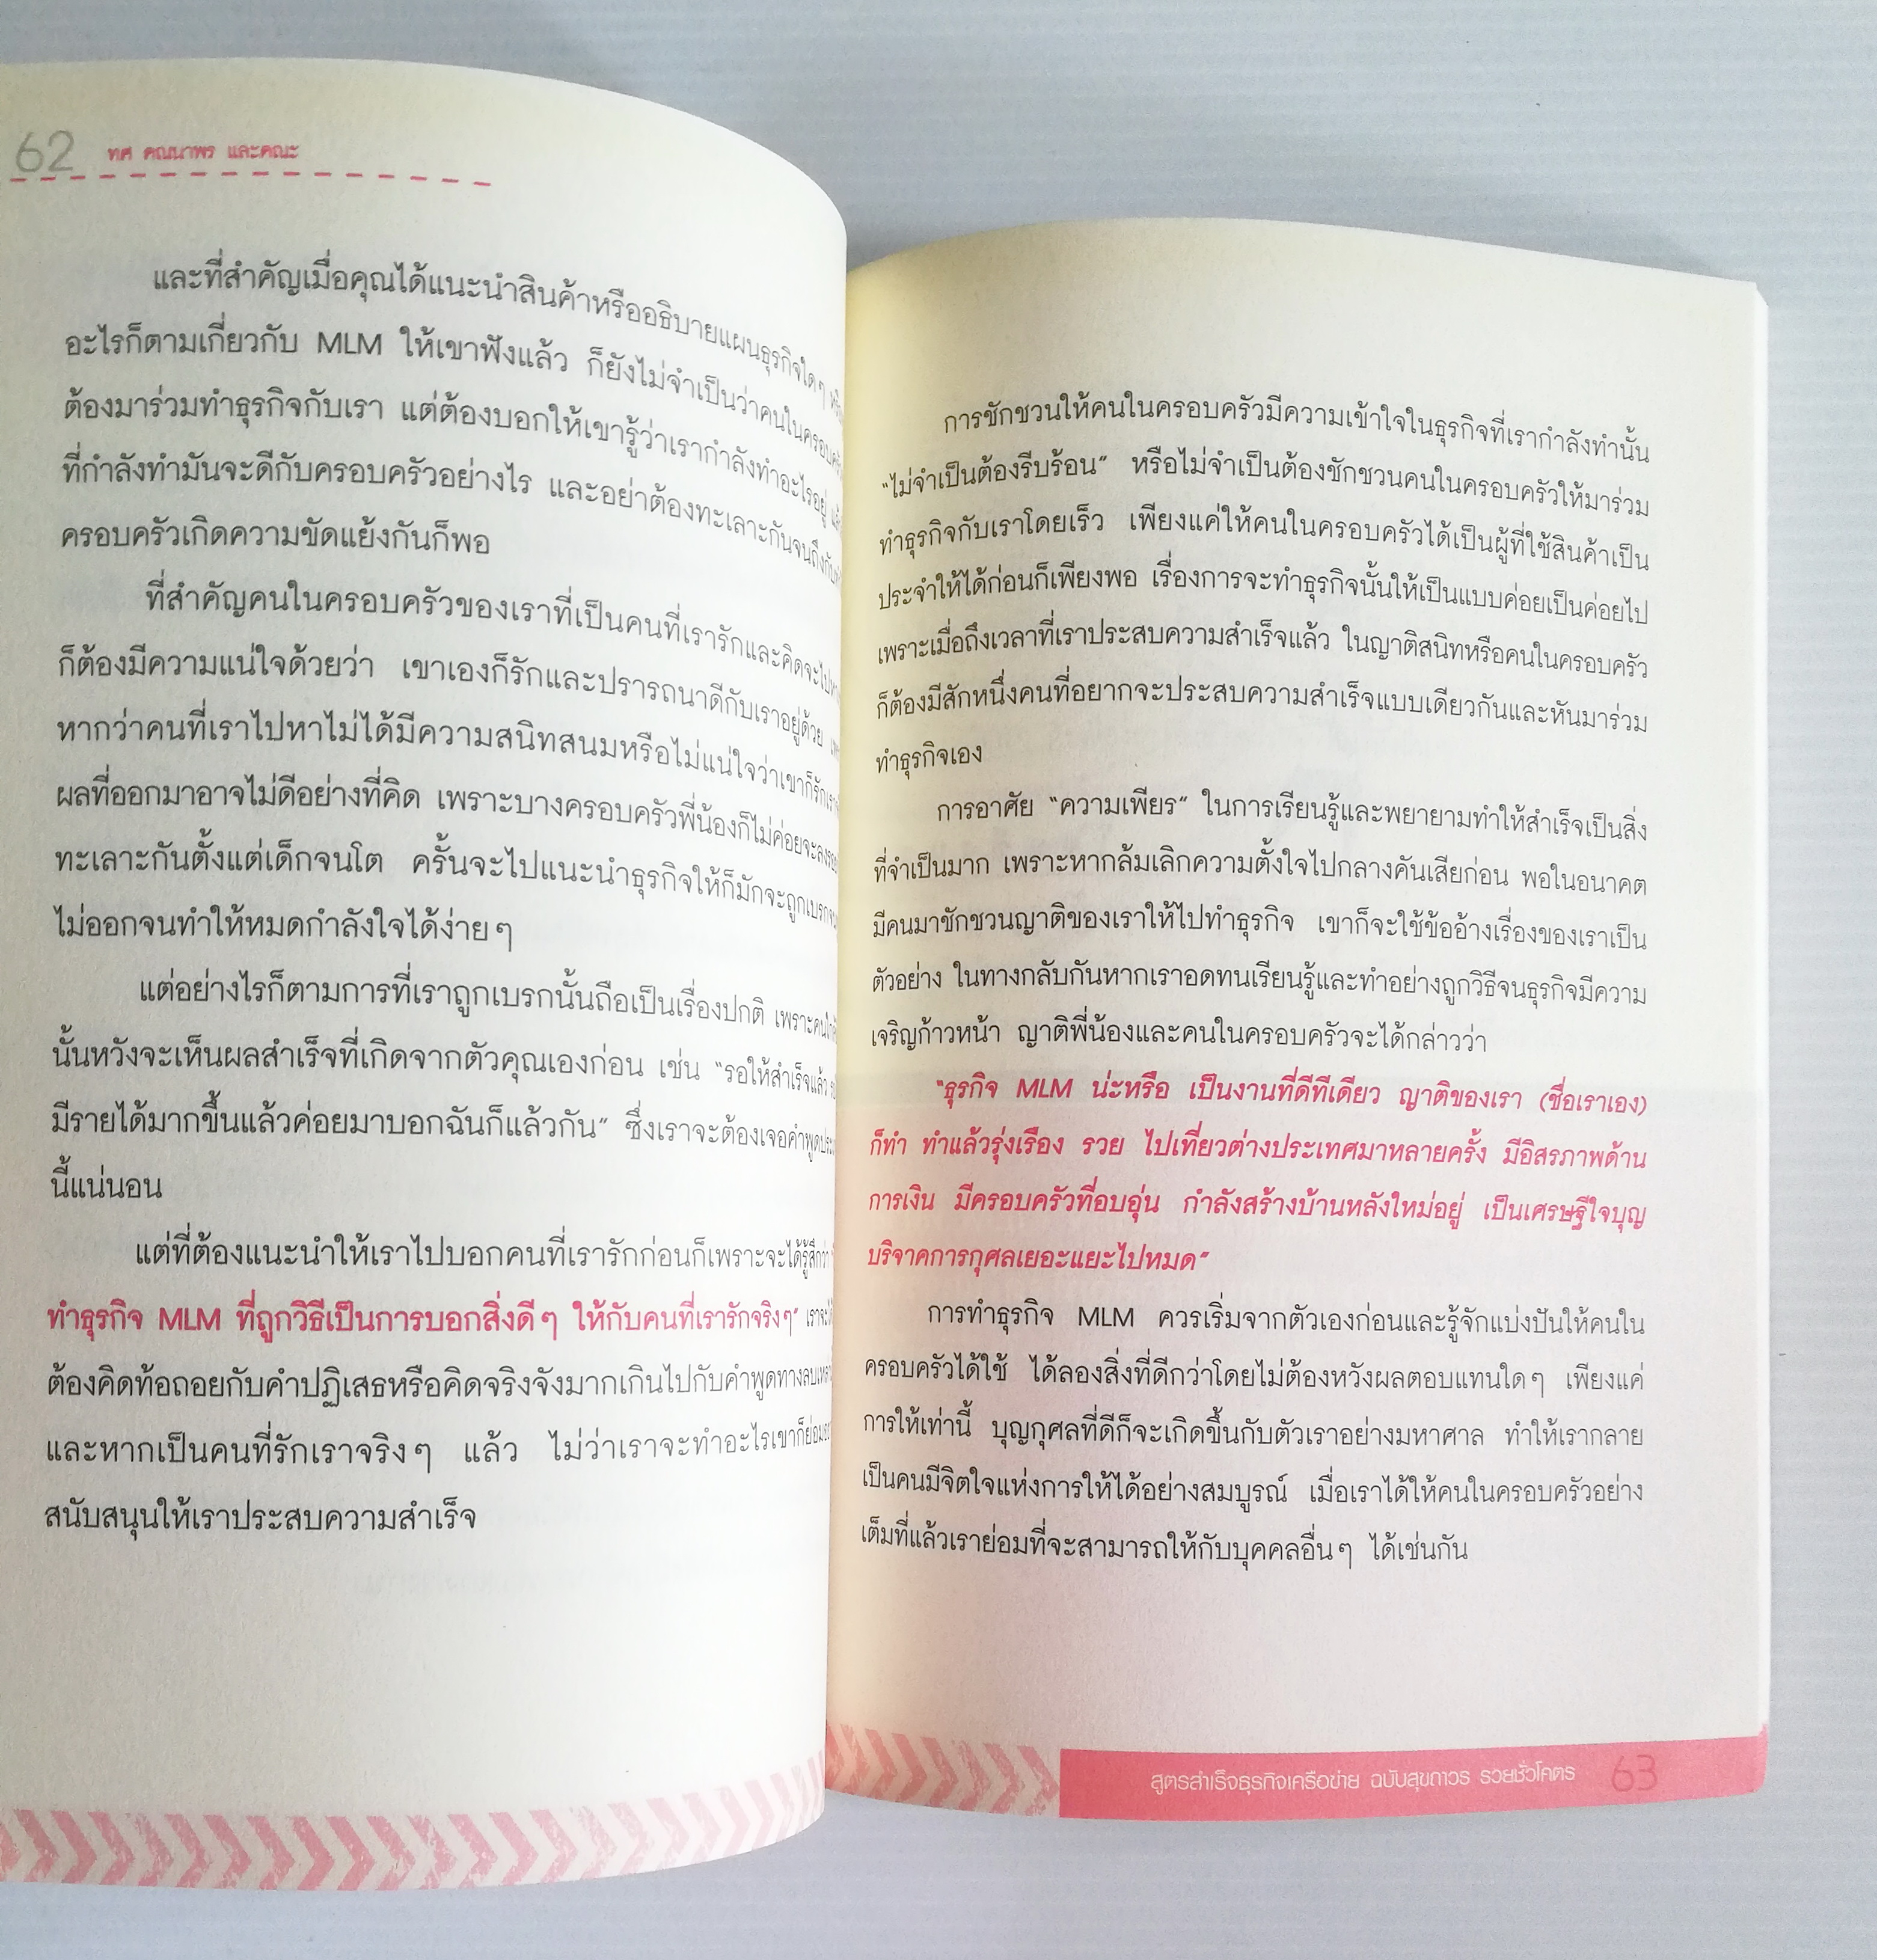 62 ทศ คณนาพร และคณะ
และที่สำคัญเมื่อคุณได้แนะนำสินค้าหรืออธิบายแผนธุรกิจใดๆ
อะไรก็ตามเกี่ยวกับ MLM ให้เขาฟังแล้ว ก็ยังไม่จำเป็นว่าคนในครอบครัว
ต้องมาร่วมทำธุรกิจกับเรา แต่ต้องบอกให้เขารู้ว่าเรากำลังทำอะไรอยู่
ที่กำลังทำมันจะดีกับครอบครัวอย่างไร และอย่าต้องทะเลาะกันจนถึงกับ
ครอบครัวเกิดความขัดแย้งกันก็พอ
ที่สำคัญคนในครอบครัวของเราที่เป็นคนที่เรารักและคิดจะไป
ก็ต้องมีความแน่ใจด้วยว่า เขาเองก็รักและปรารถนาดีกับเราอยู่ด้วย
หากว่าคนที่เราไปหาไม่ได้มีความสนิทสนมหรือไม่แน่ใจว่าเขาก็รักเรา
ผลที่ออกมาอาจไม่ดีอย่างที่คิด เพราะบางครอบครัวพี่น้องก็ไม่ค่อยจะ
ทะเลาะกันตั้งแต่เด็กจนโต ครั้นจะไปแนะนำธุรกิจให้ก็มักจะถูกเบรก
ไม่ออกจนทำให้หมดกำลังใจได้ง่ายๆ
แต่อย่างไรก็ตามการที่เราถูกเบรกนั้นถือเป็นเรื่องปกติ
นั้นหวังจะเห็นผลสำเร็จที่เกิดจากตัวคุณเองก่อน เช่น “รอให้สำเร็จแล้ว
มีรายได้มากขึ้นแล้วค่อยมาบอกฉันก็แล้วกัน” ซึ่งเราจะต้องเจอคำพูด
นี้แน่นอน
แต่ที่ต้องแนะนำให้เราไปบอกคนที่เรารักก่อนก็เพราะจะได้รู้สึกว่า
ทำธุรกิจ MLM ที่ถูกวิธีเป็นการบอกสิ่งดีๆ ให้กับคนที่เรารักจริงๆ”
ต้องคิดท้อถอยกับคำปฏิเสธหรือคิดจริงจังมากเกินไปกับคำพูดทางลบ
และหากเป็นคนที่รักเราจริงๆ แล้ว ไม่ว่าเราจะทำอะไรเขาก็ย่อม
สนับสนุนให้เราประสบความสำเร็จ
การชักชวนให้คนในครอบครัวมีความเข้าใจในธุรกิจที่เรากำลังทำนั้น
“ไม่จำเป็นต้องรีบร้อน” หรือไม่จำเป็นต้องชักชวนคนในครอบครัวให้มาร่วม
ทำธุรกิจกับเราโดยเร็ว เพียงแค่ให้คนในครอบครัวได้เป็นผู้ที่ใช้สินค้าเป็น
ประจำให้ได้ก่อนก็เพียงพอ เรื่องการจะทำธุรกิจนั้นให้เป็นแบบค่อยเป็นค่อยไป
เพราะเมื่อถึงเวลาที่เราประสบความสำเร็จแล้ว ในญาติสนิทหรือคนในครอบครัว
ก็ต้องมีสักหนึ่งคนที่อยากจะประสบความสำเร็จแบบเดียวกันและหันมาร่วม
ทำธุรกิจเอง
การอาศัย “ความเพียร” ในการเรียนรู้และพยายามทำให้สำเร็จเป็นสิ่ง
ที่จำเป็นมาก เพราะหากล้มเลิกความตั้งใจไปกลางคันเสียก่อน พอในอนาคต
มีคนมาชักชวนญาติของเราให้ไปทำธุรกิจ เขาก็จะใช้ข้ออ้างเรื่องของเราเป็น
ตัวอย่าง ในทางกลับกันหากเราอดทนเรียนรู้และทำอย่างถูกวิธีจนธุรกิจมีความ
เจริญก้าวหน้า ญาติพี่น้องและคนในครอบครัวจะได้กล่าวว่า
“ธุรกิจ MLM น่ะหรือ เป็นงานที่ดีทีเดียว ญาติของเรา (ชื่อเราเอง)
ก็ทำ ทำแล้วรุ่งเรือง รวย ไปเที่ยวต่างประเทศมาหลายครั้ง มีอิสรภาพด้าน
การเงิน มีครอบครัวที่อบอุ่น กำลังสร้างบ้านหลังใหม่อยู่ เป็นเศรษฐีใจบุญ
บริจาคการกุศลเยอะแยะไปหมด”
การทำธุรกิจ MLM ควรเริ่มจากตัวเองก่อนและรู้จักแบ่งปันให้คนใน
ครอบครัวได้ใช้ ได้ลองสิ่งที่ดีกว่าโดยไม่ต้องหวังผลตอบแทนใดๆ เพียงแค่
การให้เท่านี้ บุญกุศลที่ดีก็จะเกิดขึ้นกับตัวเราอย่างมหาศาล ทำให้เรากลาย
เป็นคนมีจิตใจแห่งการให้ได้อย่างสมบูรณ์ เมื่อเราได้ให้คนในครอบครัวอย่าง
เต็มที่แล้วเราย่อมที่จะสามารถให้กับบุคคลอื่นๆ ได้เช่นกัน
สูตรสำเร็จธุรกิจเครือข่าย ฉบับสุขถาวร รวยชั่วโคตร 63